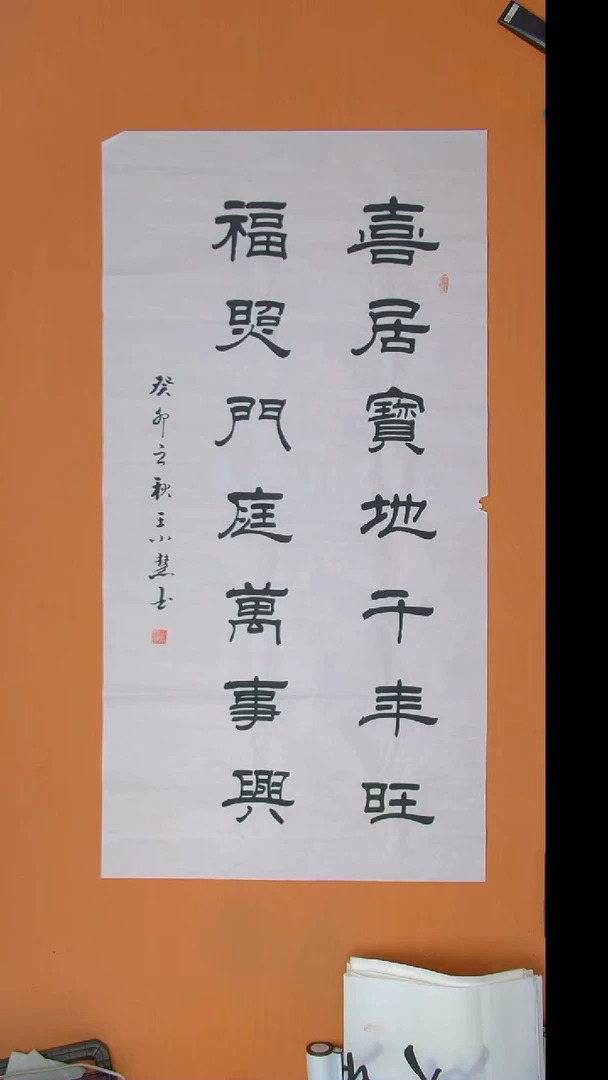 喜居寶地千年旺
福照門庭萬事興
癸卯立秋王小慧書